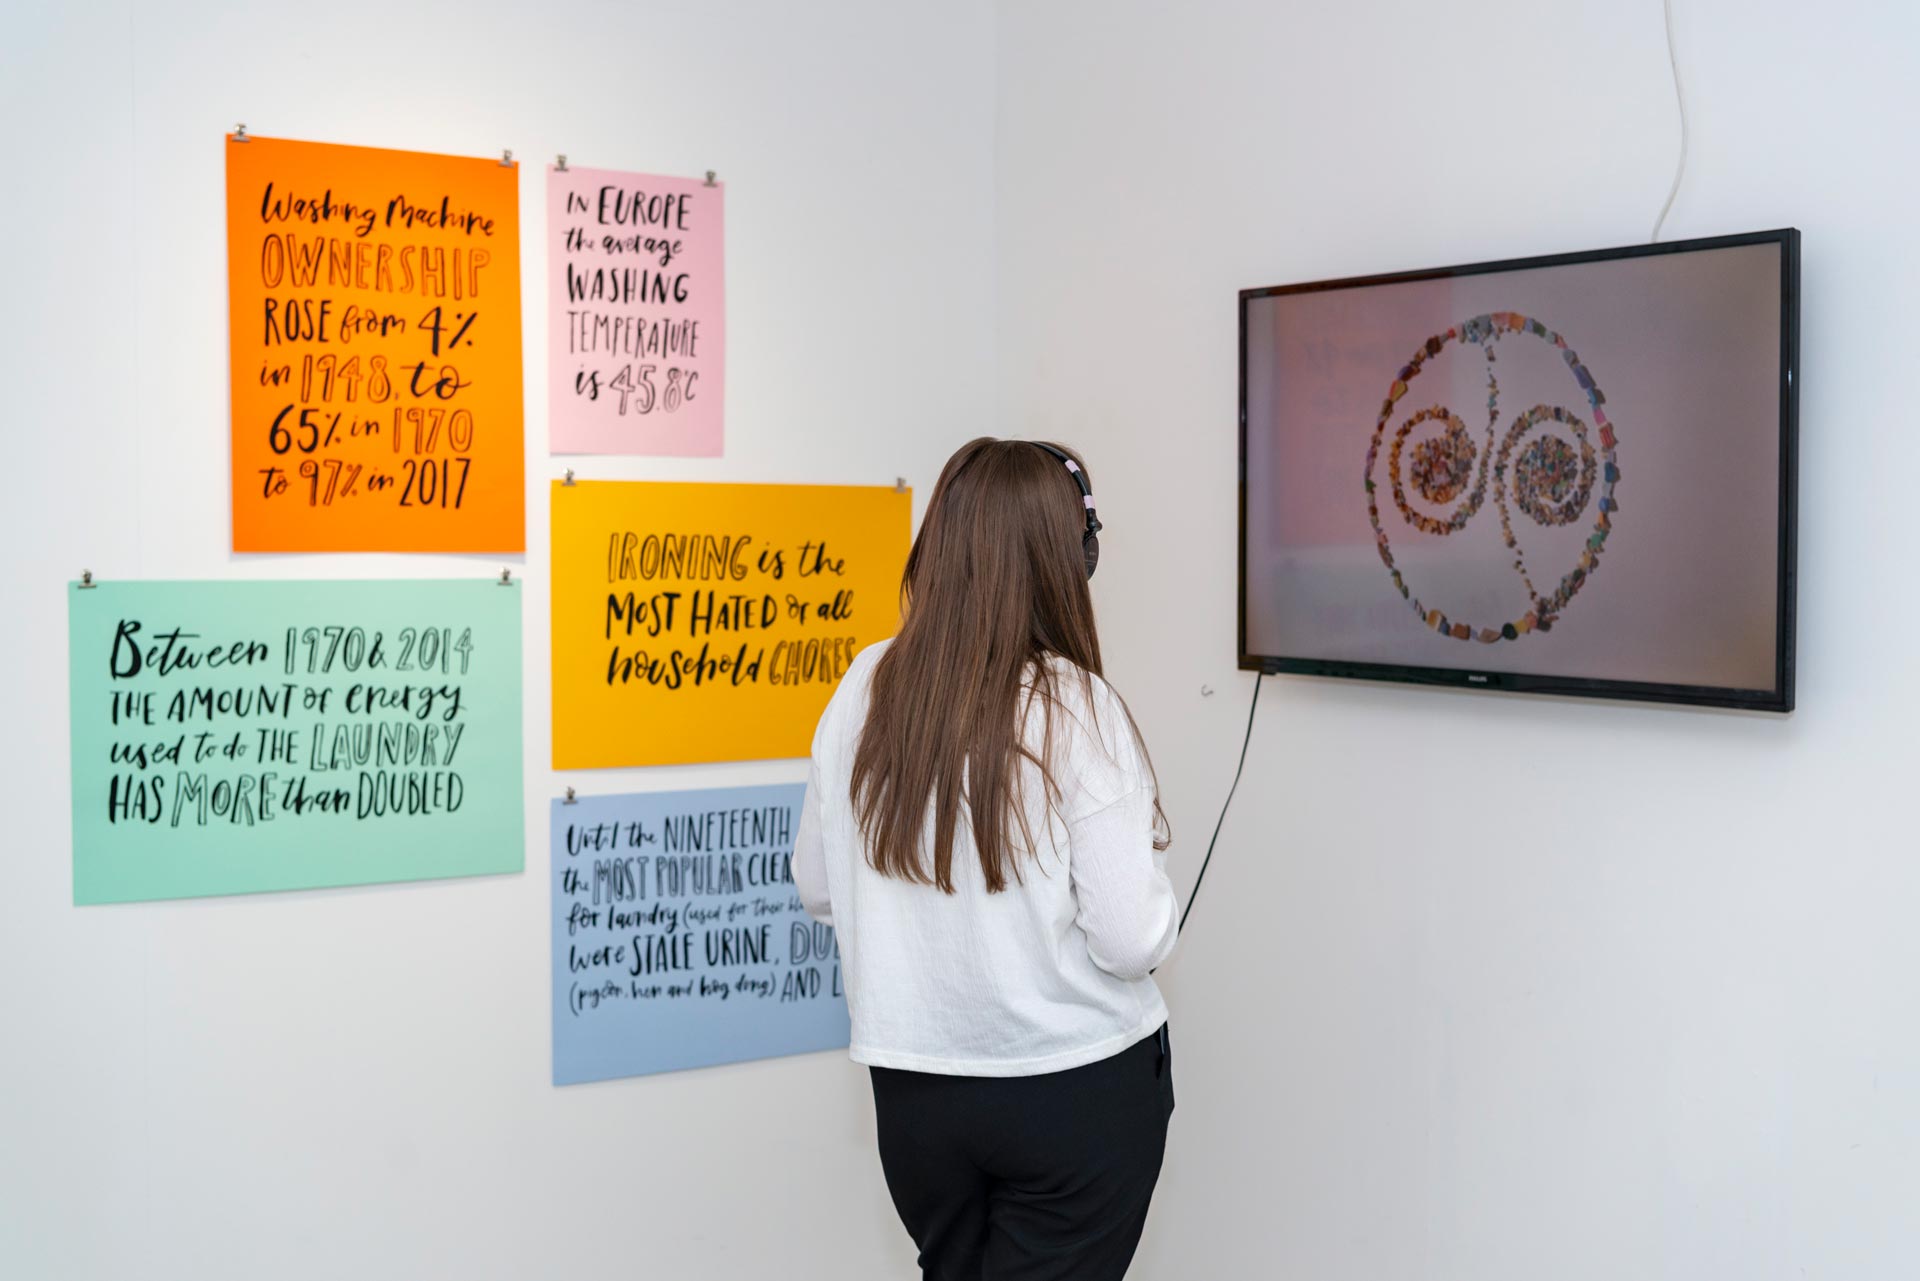 Washing Machine
OWNERSHIP
ROSE from 4%
in 1948, to
65% in 1970
to 97% in 2017
IN EUROPE
the average
WASHING
TEMPERATURE
is 45.8°C
IRONING is the
MOST HATED of all
household CHORES
Between 1970 & 2014
THE AMOUNT of energy
used to do THE LAUNDRY
HAS MORE than DOUBLED
Until the NINETEENTH
the MOST POPULAR
for laundry (used for their
were STALE URINE,
(pigeon, hen and hog dung) AND
PHILIPS